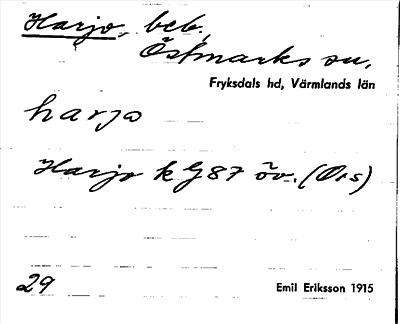 Harjo, beb.
Östmarks sn,
Fryksdals hd, Värmlands län
harjo
Harjo k G87 öv. (Ots)
29 Emil Eriksson 1915